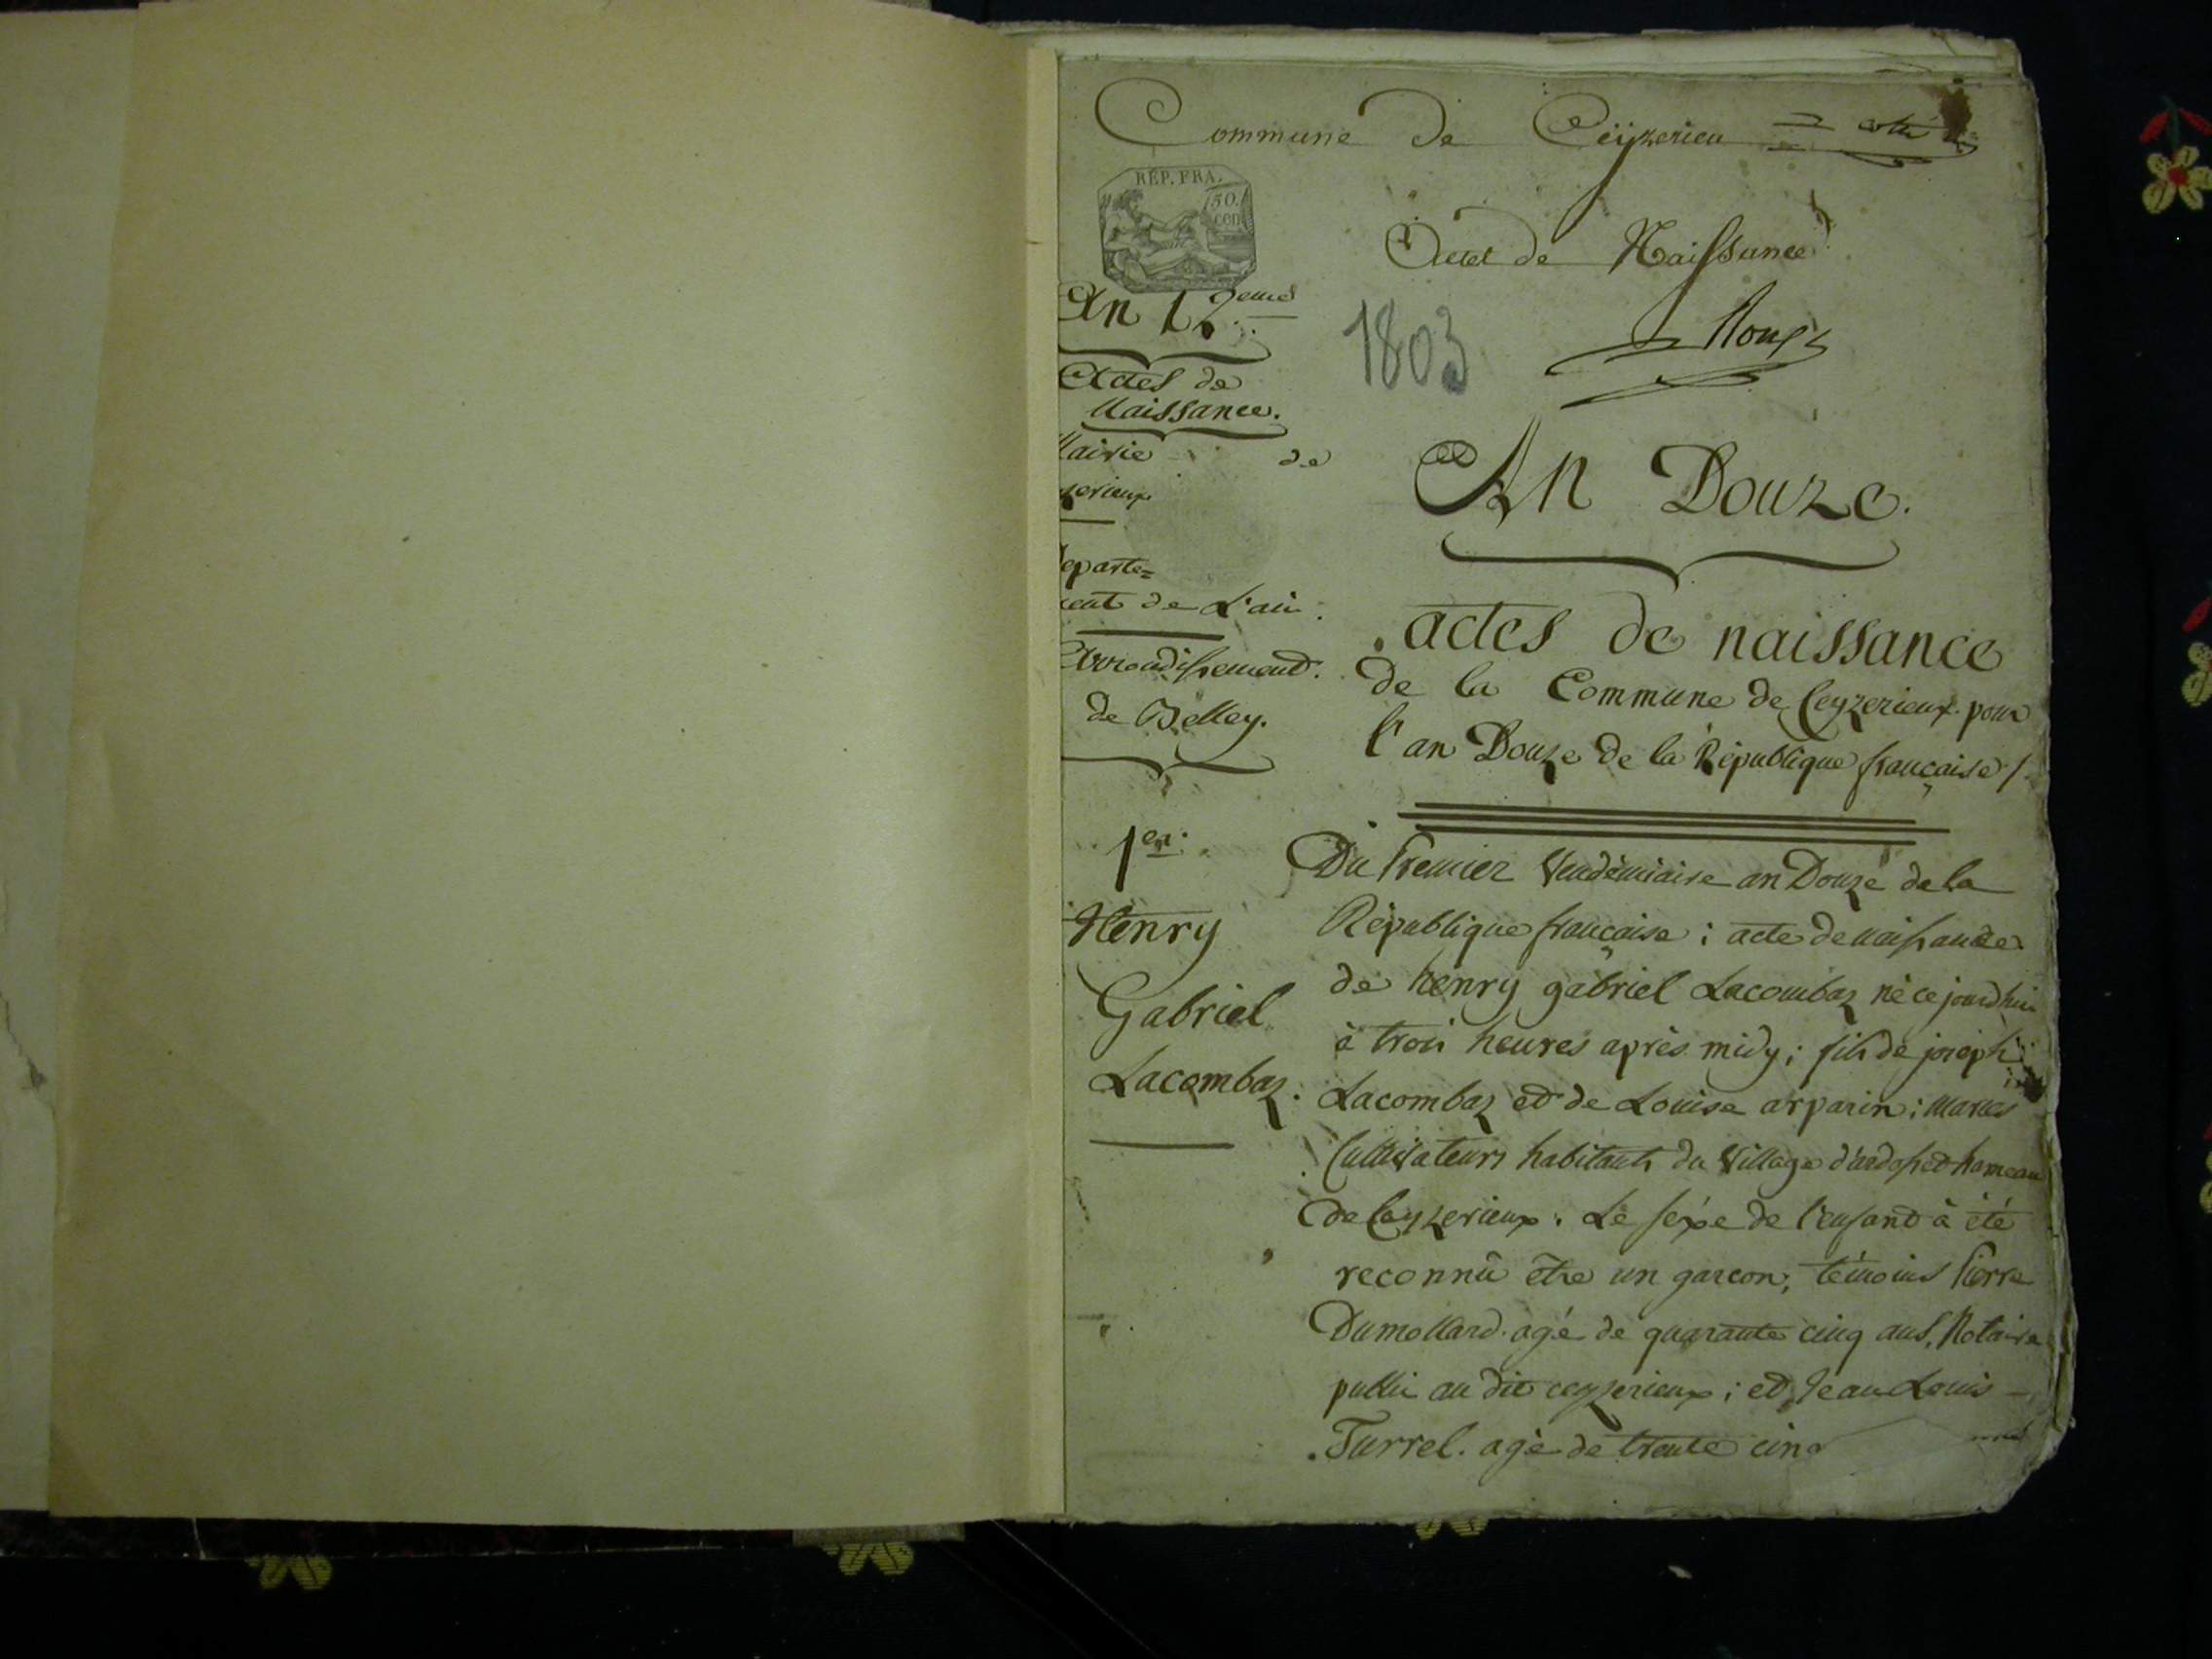 Commune de Ceÿzerieu
RÉP. FRA.
50.
cen
Actes de Naissance
An 12.eme
1803
Actes de
Naissance.
Mairie de
zerieux
An Douze.
departe=
ment de L'ain.
Arrondissement.
de Belley.
actes de naissance
de la Commune de Ceyzerieux pour
l'an Douze de la République française /.
1er.
Henry
Gabriel
Lacombaz.
Du Premier Vendémiaire an Douze de la
République française ; acte de naissance
de henry gabriel Lacombaz né ce jourdhui
à trois heures après midy ; fils de joseph
Lacombaz et de Louise arparin ; mariés
Cultivateurs habitants du Village d'ardosset hameau
de Ceyzerieux. Le sexe de l'enfant à été
reconnû être un garcon ; témoins Pierre
Dumollard. agé de quarante cinq ans, Notaire
public au dit ceyzerieux ; et Jean Louis
Turrel. agé de trente cinq